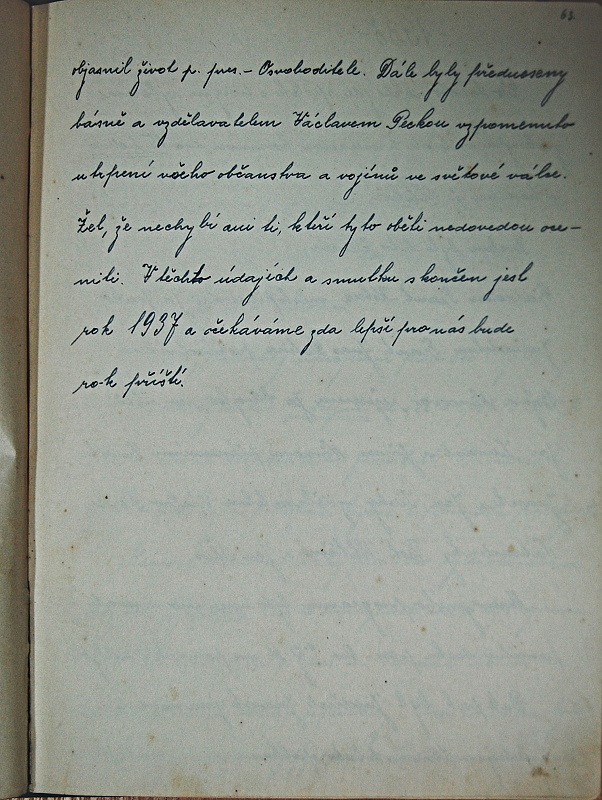 63.
objasnil život p. pres. - Osvoboditele. Dále byly předneseny
básně a vzdělavatelem Václavem Peckou vzpomenuto
utrpení všeho občanstva a vojínů ve světové válce.
Žel, že nechybí ani ti, kteří tyto oběti nedovedou oce-
niti. V těchto údajích a smutku skončen jest
rok 1937 a očekáváme zda lepší pro nás bude
rok příští.